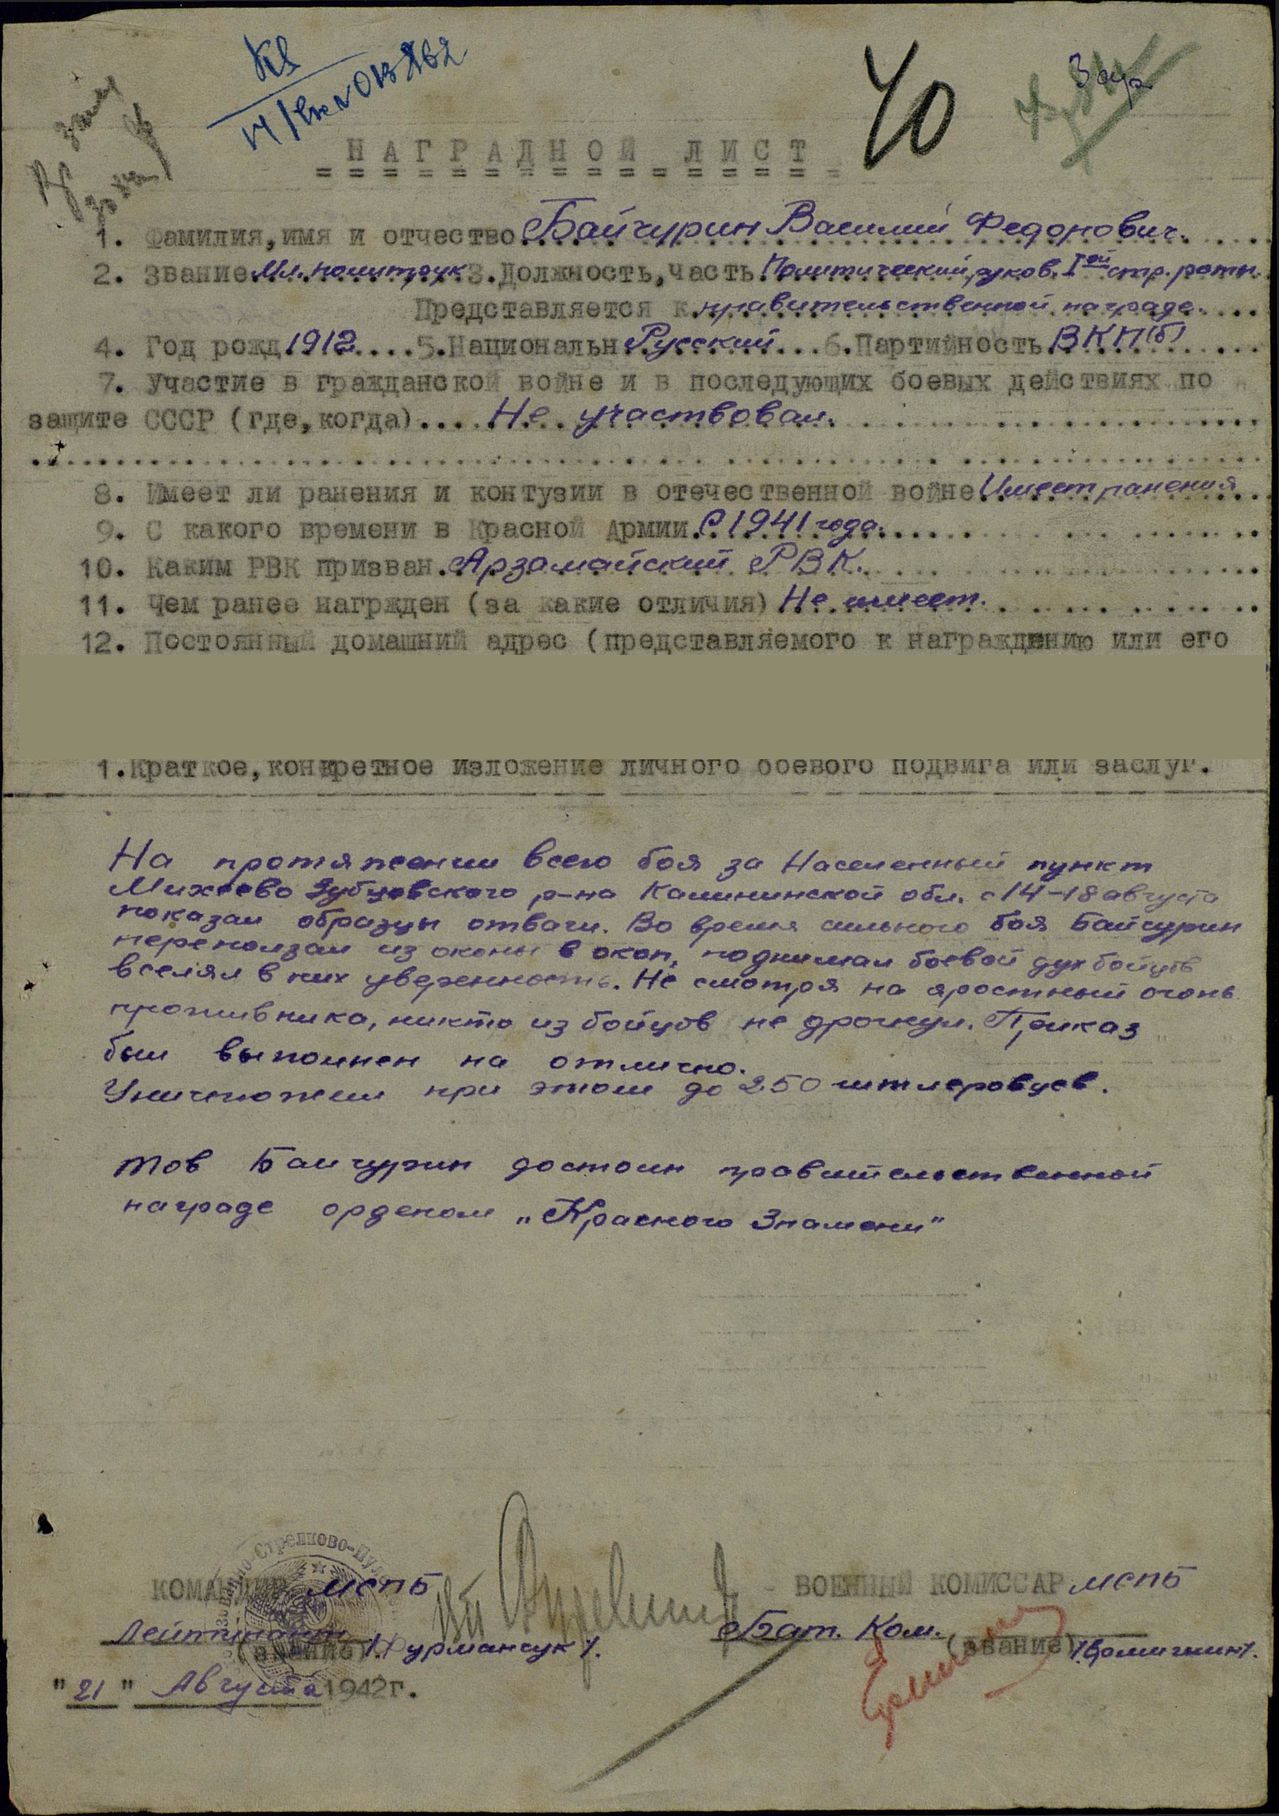 40
НАГРАДНОЙ ЛИСТ
1. Фамилия,имя и отчество Байчурин Василий Федорович.
2. Звание Мл. политрук 3.Должность,часть Политический руков. I ой стр. роты
Представляется к правительственной награде.
4. Год рожд.1912....5.Национальн Русский...6.Партийность ВКП(б)
7. Участие в гражданской войне и в последующих боевых действиях по
защите СССР (где,когда).... Не участвовал.
8. Имеет ли ранения и контузии в отечественной войне Имеет ранения
9. С какого времени в Красной Армии С 1941 года.
10. Каким РВК призван Арзамайский РВК.
11. Чем ранее нагржден (за какие отличия) Не имеет.
12. Постоянный домашний адрес (представляемого к награждению или его
1.Краткое,конкретное изложение личного боевого подвига или заслуг.
На протяжении всего боя за Населенный пункт
Михеево Зубцовского р-на Калининской обл. с 14-18 августа
показал образцы отваги. Во время сильного боя Байчурин
переползал из окопы в окоп, поднимал боевой дух бойцов
вселял в них уверенность. Не смотря на яростный огонь
противника, никто из бойцов не дрогнул. Приказ
был выполнен на отлично.
Уничтожели при этом до 250 гитлеровцев.
Тов Байчурин достоин правительственной
награде орденом „Красного Знамени"
КОМАНДИР МСПБ ВОЕННЫЙ КОМИССАР МСПБ
Лейтенант (звание) /Нурманчук/. Бат. Ком. (звание)
"21" Августа 1942г.